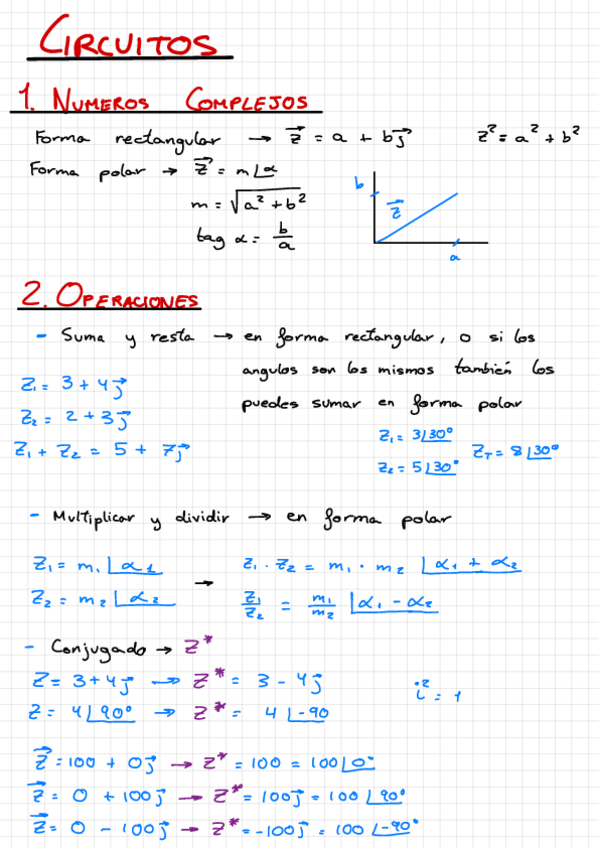 CIRCUITOS
1. NUMEROS COMPLEJOS
Forma rectangular → z⃗ = a + bj⃗ z² = a² + b²
Forma polar → z⃗ = m∠α
m = √(a² + b²)
tag α = b/a
b
z⃗
a
2. OPERACIONES
- Suma y resta → en forma rectangular, o si los
angulos son los mismos también los
puedes sumar en forma polar
Z₁ = 3 + 4j⃗
Z₂ = 2 + 3j⃗
Z₁ + Z₂ = 5 + 7j⃗
Z₁ = 3∠30°
Z₂ = 5∠30°
Z_T = 8∠30°
- Multiplicar y dividir → en forma polar
Z₁ = m₁∠α₁
Z₂ = m₂∠α₂
→
Z₁ · Z₂ = m₁ · m₂ ∠α₁ + α₂
Z₁/Z₂ = m₁/m₂ ∠α₁ - α₂
- Conjugado → Z*
Z = 3 + 4j⃗ → Z* = 3 - 4j⃗
i² = 1
Z = 4∠90° → Z* = 4∠-90
Z⃗ = 100 + 0j⃗ → Z* = 100 = 100∠0°
Z⃗ = 0 + 100j⃗ → Z* = 100j⃗ = 100∠90°
Z⃗ = 0 - 100j⃗ → Z* = -100j⃗ = 100∠-90°